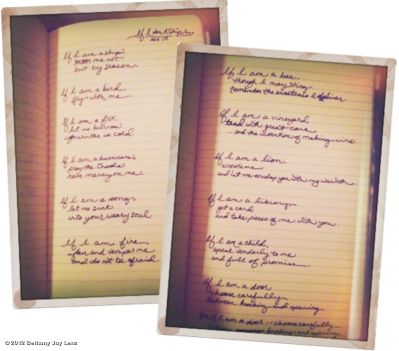 If I am a ship,
moor me not
but by season.
If I am a bird,
fly with me.
If I am a fox,
let us burrow
If I am a hurricane,
pray the Gods
have mercy on me.
If I am a song,
let me sink
into your weary soul.
If I am fire
fan and temper me
and do not be afraid.
If I am a bee,
though I may sting
remember the sweetness I deliver
If I am a vineyard,
tend with great care
and the intention of making wine
If I am a lion,
and let me envelop you with my
If I am a library,
get a card
and take pieces of me with you.
If I am a child,
speak tenderly to me
and full of promise.
If I am a door
choose carefully
between knocking and opening
If I am a door - choose carefully
between knocking and opening
© 2012 Bethany Joy Lenz